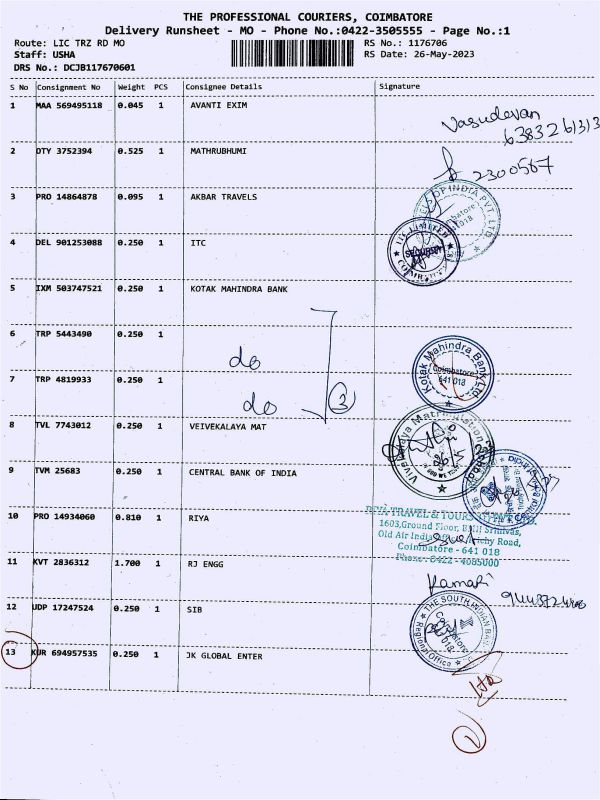 THE PROFESSIONAL COURIERS, COIMBATORE
Delivery Runsheet - MO - Phone No.:0422-3505555 - Page No.:1
Route: LIC TRZ RD MO
RS No.: 1176706
Staff: USHA
RS Date: 26-May-2023
DRS No.: DCJB117670601
S No Consignment No Weight PCS Consignee Details Signature
1 MAA 569495118 0.045 1 AVANTI EXIM
Vasudevan
2 DTY 3752394 0.525 1 MATHRUBHUMI
2300567
3 PRO 14864878 0.095 1 AKBAR TRAVELS
4 DEL 901253088 0.250 1 ITC
ITC LIMITED
SECURITY
5 IXM 503747521 0.250 1 KOTAK MAHINDRA BANK
6 TRP 5443490 0.250 1 do
Kotak Mahindra Bank Ltd.
Coimbatore
641 018
7 TRP 4819933 0.250 1 do
3
8 TVL 7743012 0.250 1 VEIVEKALAYA MAT
9 TVM 25683 0.250 1 CENTRAL BANK OF INDIA
10 PRO 14934060 0.810 1 RIYA
1603,Ground Floor,
Old Air India Road,
Coimbatore - 641 018
Phone: 0422 - 4085000
11 KVT 2836312 1.700 1 RJ ENGG
12 UDP 17247524 0.250 1 SIB
THE SOUTH INDIAN BANK
Regional Office
Coimbatore
13 KUR 694957535 0.250 1 JK GLOBAL ENTER